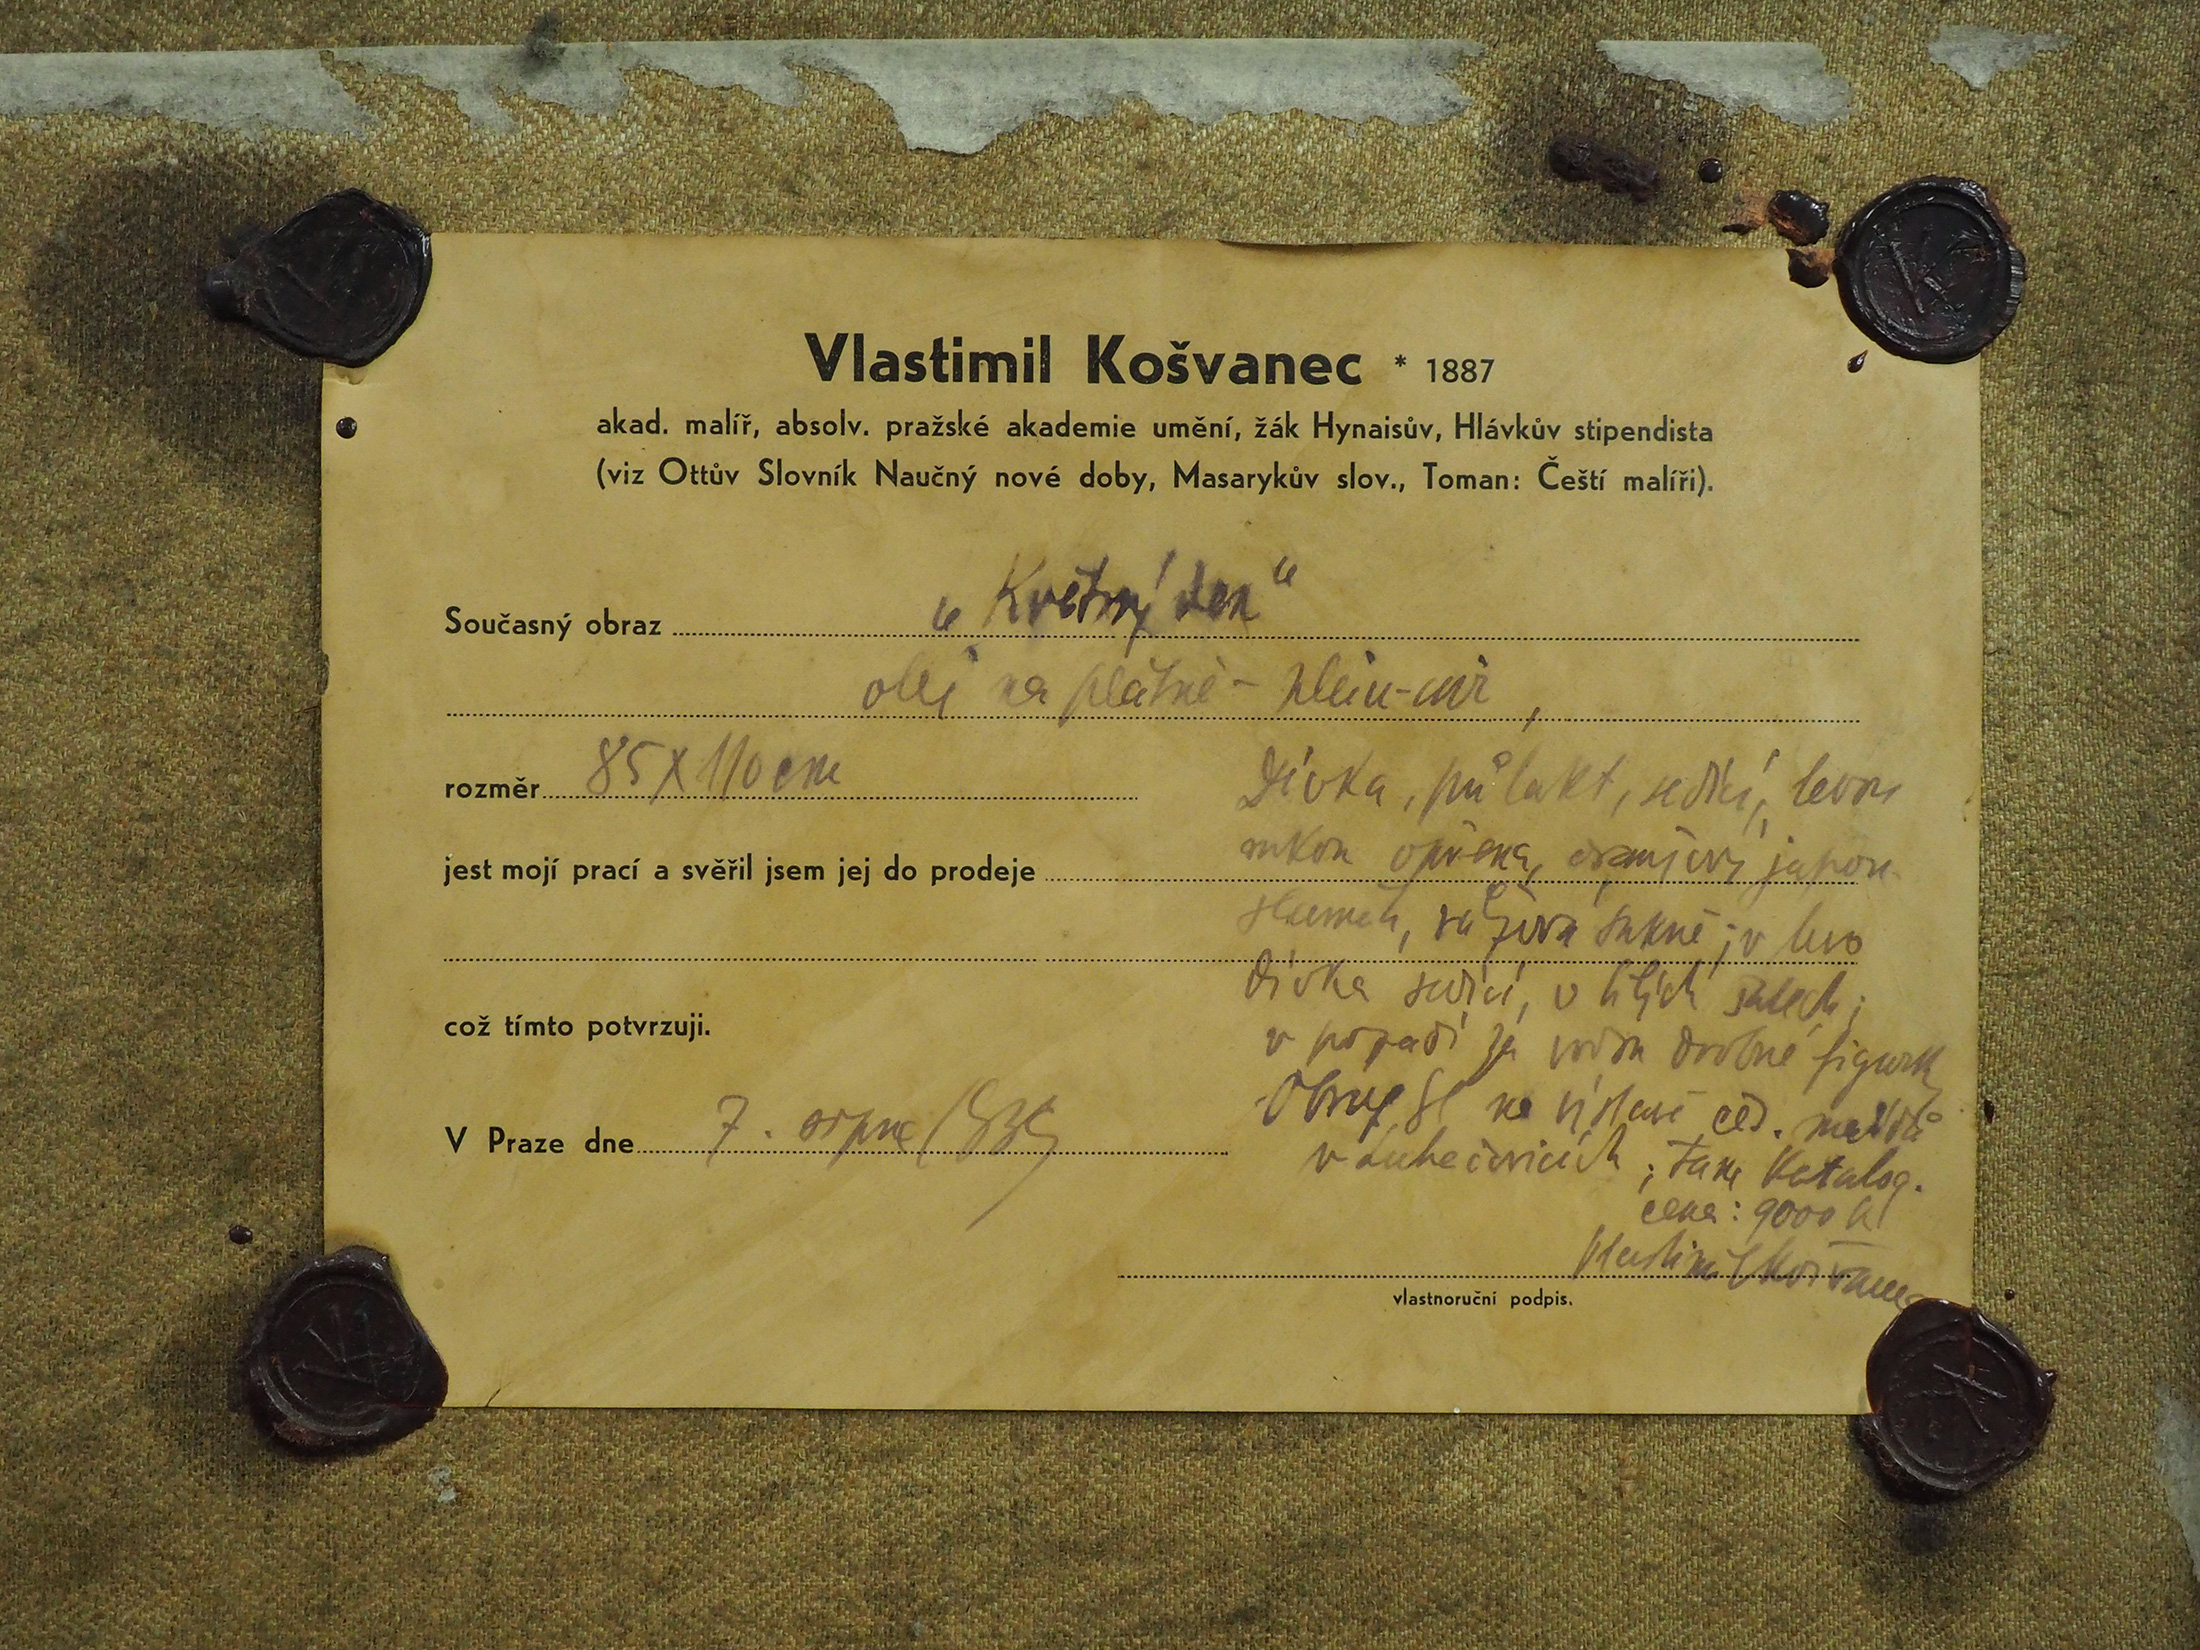 Vlastimil Košvanec * 1887
akad. malíř, absolv. pražské akademie umění, žák Hynaisův, Hlávkův stipendista
(viz Ottův Slovník Naučný nové doby, Masarykův slov., Toman: Čeští malíři).
Současný obraz „Květný den“
olej na plátně - plein-air,
rozměr 85 x 110 cm
Dívka, půlakt, sedící, levou
rukou opřena, oranžový japon.
jest mojí prací a svěřil jsem jej do prodeje
slunečník, růžová sukně; v levo
dívka sedící, v bílých šatech;
což tímto potvrzuji.
v popadí za vodou drobné figurky
Obraz byl na výstavě čes. malířů
V Praze dne 7. srpna
v Luhačovicích; Katalog.
cena: 9000 K
Vlastimil Košvanec
vlastnoruční podpis.